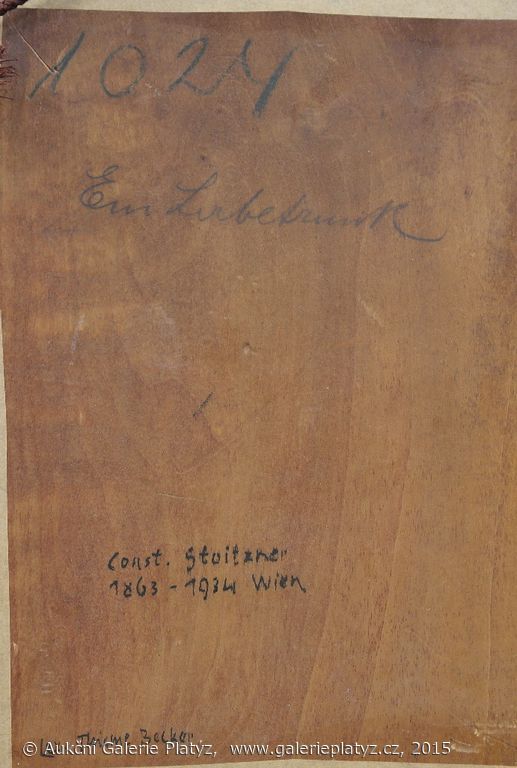 1024
Ein Labetrunk
Const. Stoitzner
1863 - 1934 Wien
Thieme Becker
© Aukční Galerie Platýz, www.galerieplatyz.cz, 2015